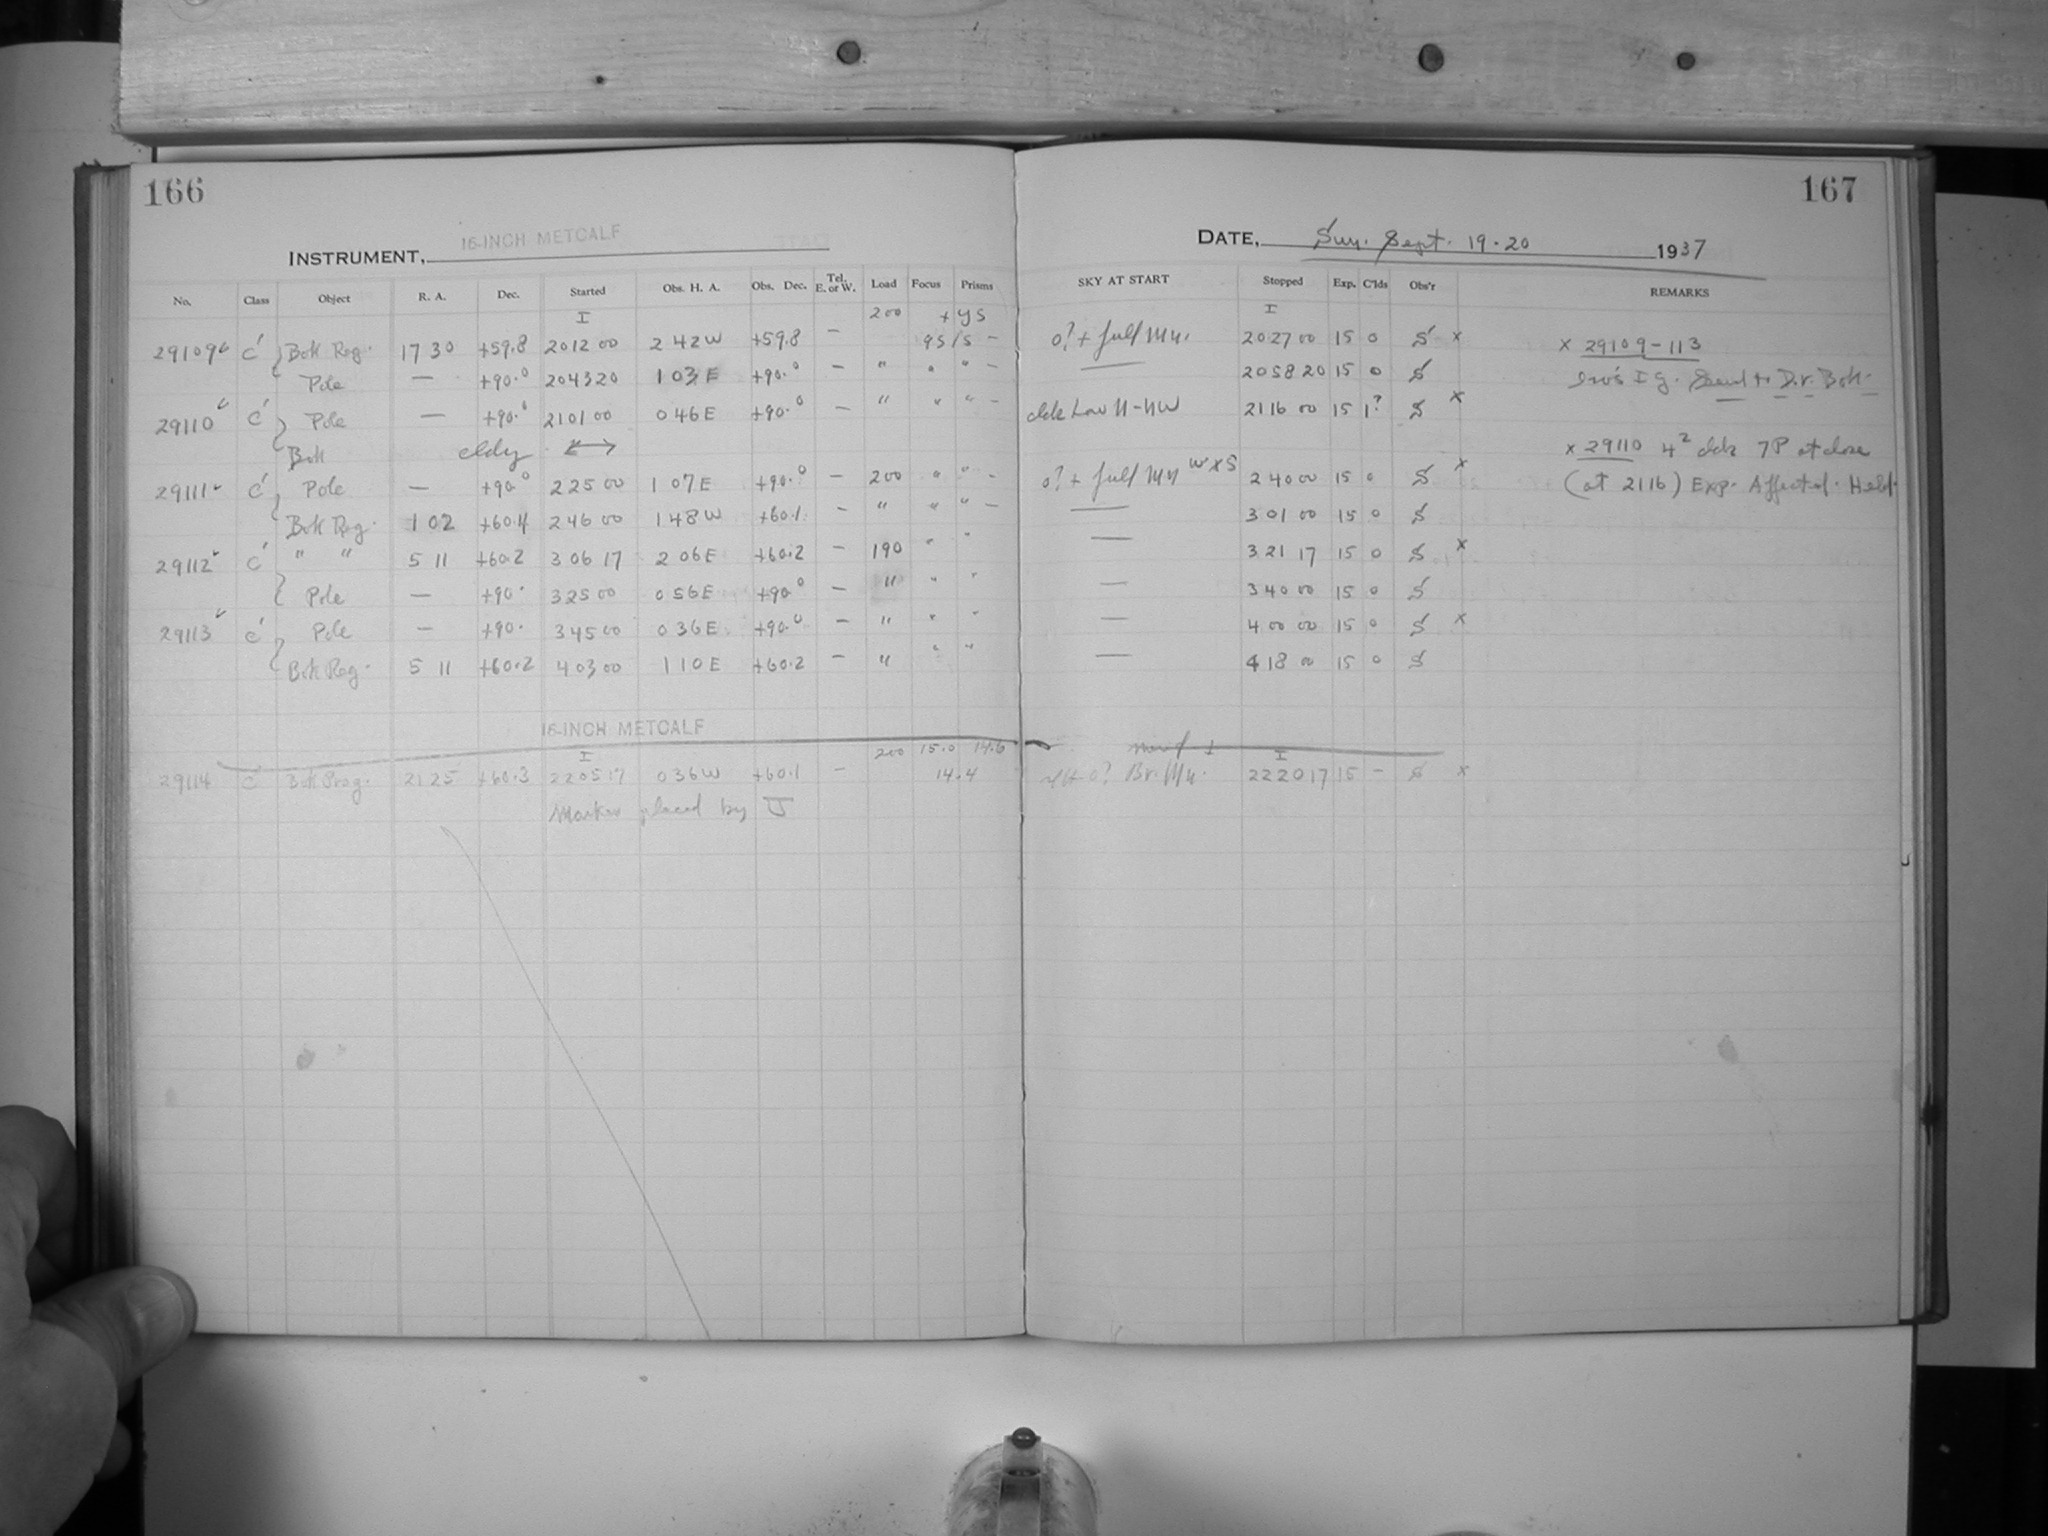 166
167
16-INCH METCALF
INSTRUMENT,
DATE, Sun. Sept. 19-20 1937
No. Class Object R. A. Dec. Started Obs. H. A. Obs. Dec. Tel. E. or W. Load Focus Prisms SKY AT START Stopped Exp. C'lds Obs'r REMARKS
I 200 I
29109 C' Bok Reg. 17 30 +59.8 20 12 00 2 42 W +59.8 — 0? + full Mn. 20 27 00 15 0 S x x 29109-113
Pole — +90.0 20 43 20 1 03 E +90.0 — " " " — — 20 58 20 15 0 S Send to Dr. Bok
29110 C' Pole — +90.0 21 01 00 0 46 E +90.0 — " " " — Low N-NW 21 16 00 15 1? S x
Bok cldy ↔ x 29110 4 7P at close
29111 C' Pole — +90.0 2 25 00 1 07 E +90.0 — 200 " " - 0? + full Mn W x S 2 40 00 15 0 S x (at 2116) Exp. Affected. Held.
Bok Reg. 1 02 +60.4 2 46 00 1 48 W +60.1 — " " " — — 3 01 00 15 0 S
29112 C' " " 5 11 +60.2 3 06 17 2 06 E +60.2 — 190 " " — 3 21 17 15 0 S x
Pole — +90. 3 25 00 0 56 E +90.0 — " " " — 3 40 00 15 0 S
29113 C' Pole — +90. 3 45 00 0 36 E +90.0 — " " " — 4 00 00 15 0 S x
Bok Reg. 5 11 +60.2 4 03 00 1 10 E +60.2 — " " " — 4 18 00 15 0 S
16-INCH METCALF
I 200 15.0 14.6 I
29114 C' Bok Prog. 21 25 +60.3 22 05 17 0 36 W +60.1 — 14.4 0? Br. Mn. 22 20 17 15 — S x
placed by J